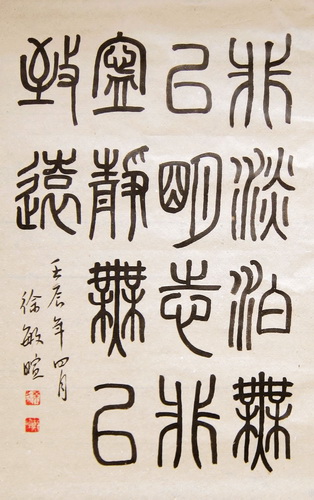 非淡泊無
以明志非
寧靜無以
致遠
壬辰年四月
徐敏暄